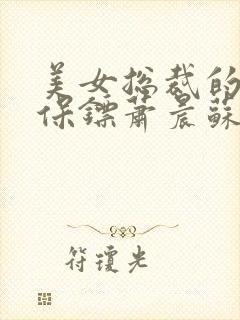 美女总裁的
保镖萧晨苏
符琼光